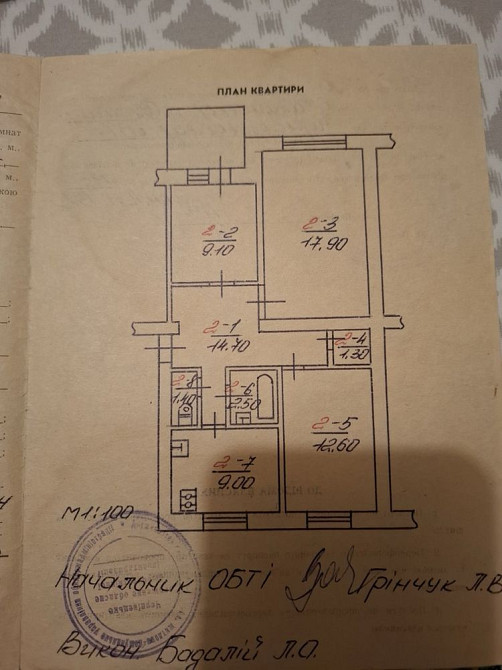 ПЛАН КВАРТИРИ
мнат
м.
м.,
2-2
9.10
2-3
17.90
2-1
14.70
2-4
1.30
2-8
1.40
2-6
2.50
2-5
12.60
2-7
9.00
М1:100
Начальник ОБТІ Грінчук Л.В
Викон. Бадалій Л.О.